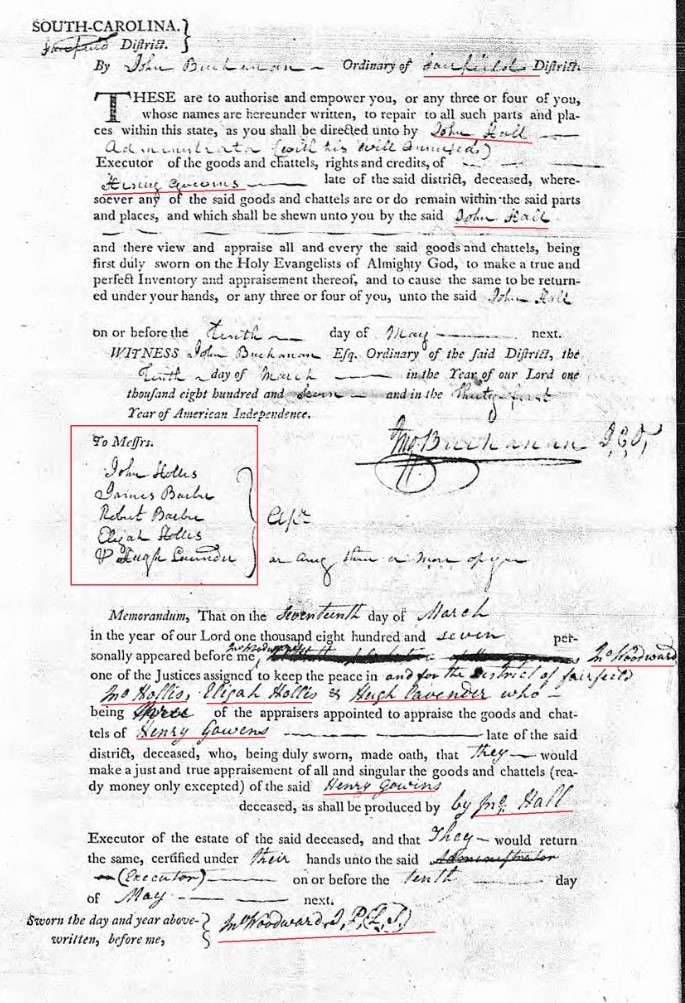 SOUTH-CAROLINA. }
District.
By John Buchanan Ordinary of Fairfield District.
THESE are to authorise and empower you, or any three or four of you,
whose names are hereunder written, to repair to all such parts and pla-
ces within this state, as you shall be directed unto by John Hall
(with his Will annexed)
Executor of the goods and chattels, rights and credits, of
Henry Gowens late of the said district, deceased, where-
soever any of the said goods and chattels are or do remain within the said parts
and places, and which shall be shewn unto you by the said John Hall
and there view and appraise all and every the said goods and chattels, being
first duly sworn on the Holy Evangelists of Almighty God, to make a true and
perfect Inventory and appraisement thereof, and to cause the same to be return-
ed under your hands, or any three or four of you, unto the said John Hall
on or before the tenth day of May next.
WITNESS John Buchanan Esq. Ordinary of the said District, the
tenth day of March in the Year of our Lord one
thousand eight hundred and seven and in the thirty first
Year of American Independence.
Jno Buchanan
To Messrs.
John Hollis
James Barber
Robert Barber
Elijah Hollis
& Hugh Lavender
or any three or more of you
Memorandum, That on the seventeenth day of March
in the year of our Lord one thousand eight hundred and seven per-
sonally appeared before me, Jno Woodward
one of the Justices assigned to keep the peace in and for the District of fairfield
Jno Hollis, Elijah Hollis & Hugh Lavender who
being three of the appraisers appointed to appraise the goods and chat-
tels of Henry Gowens late of the said
district, deceased, who, being duly sworn, made oath, that they would
make a just and true appraisement of all and singular the goods and chattels (rea-
dy money only excepted) of the said Henry Gowins
deceased, as shall be produced by by Jno. Hall
Executor of the estate of the said deceased, and that They would return
the same, certified under their hands unto the said Administrator
(Executor) on or before the tenth day
of May next.
Sworn the day and year above- } Jno Woodward, J, P, (L,S,)
written, before me,